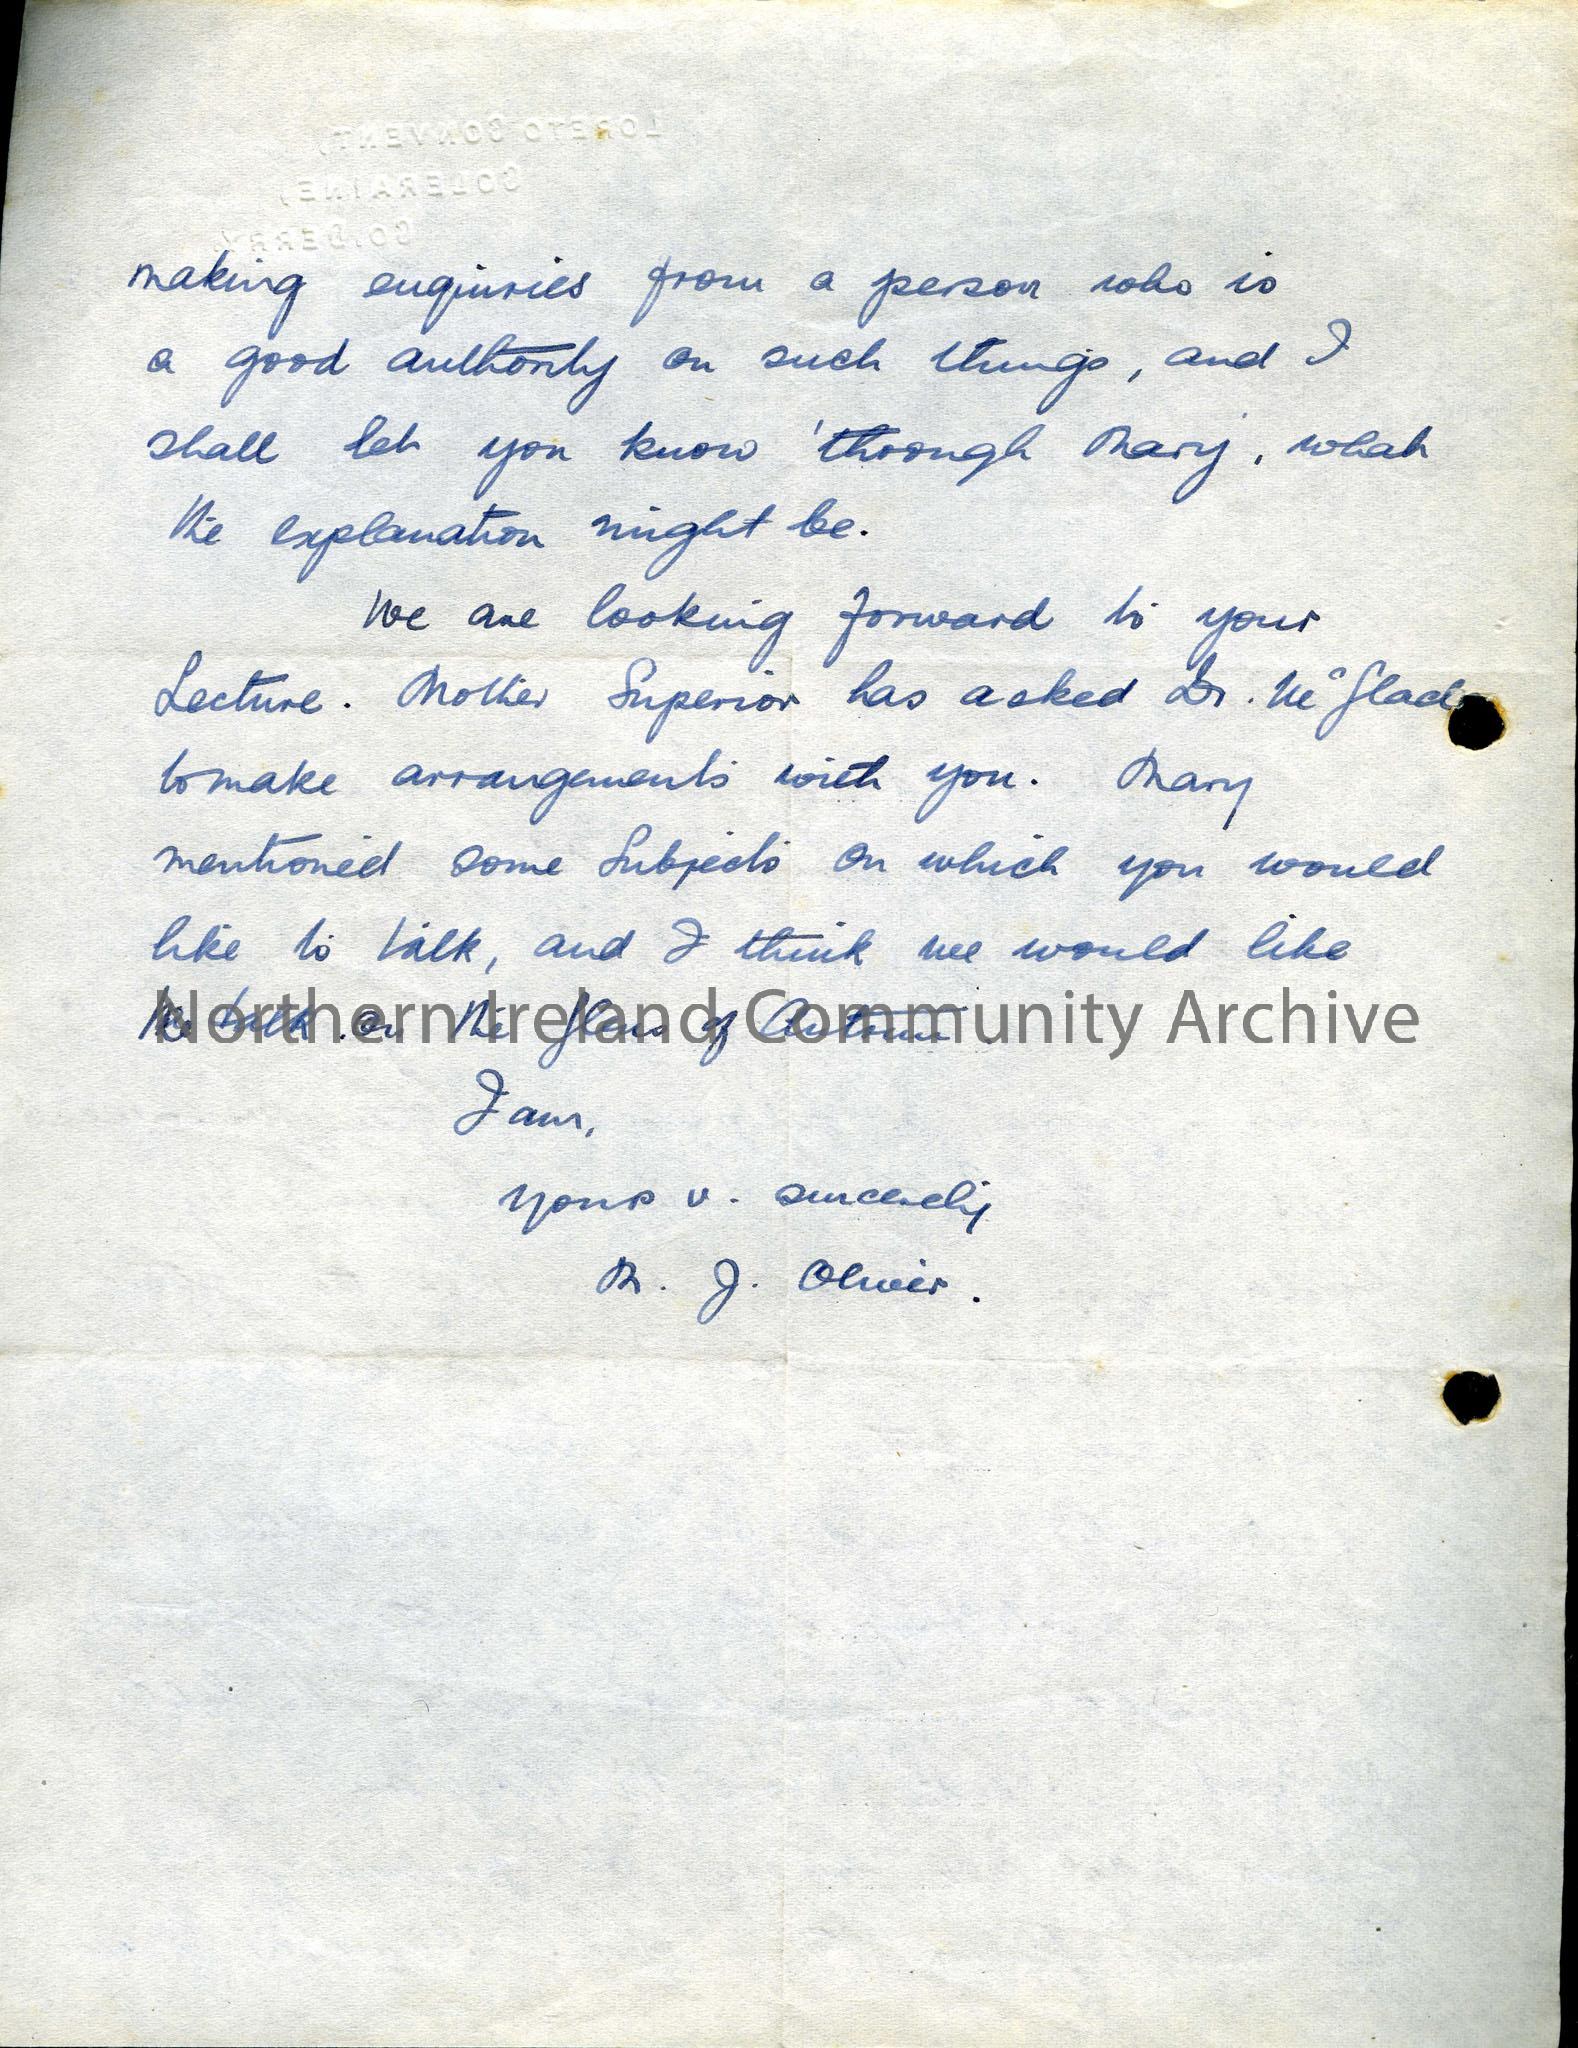 LORETO CONVENT,
COLERAINE,
CO. DERRY.
making enquiries from a person who is
a good authority on such things, and I
shall let you know 'through Mary', what
the explanation might be.
We are looking forward to your
Lecture. Mother Superior has asked Dr. McGlad
to make arrangements with you. Mary
mentioned some Subjects on which you would
like to talk, and I think we would like
the talk on the Glens of Antrim.
Northern Ireland Community Archive
I am,
Yours v. sincerely
M. J. Oliver.